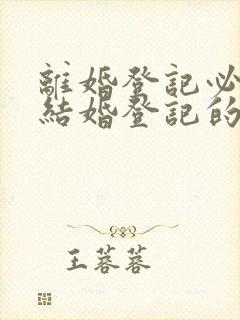 離婚登記必
結婚登記的
王蓉蓉